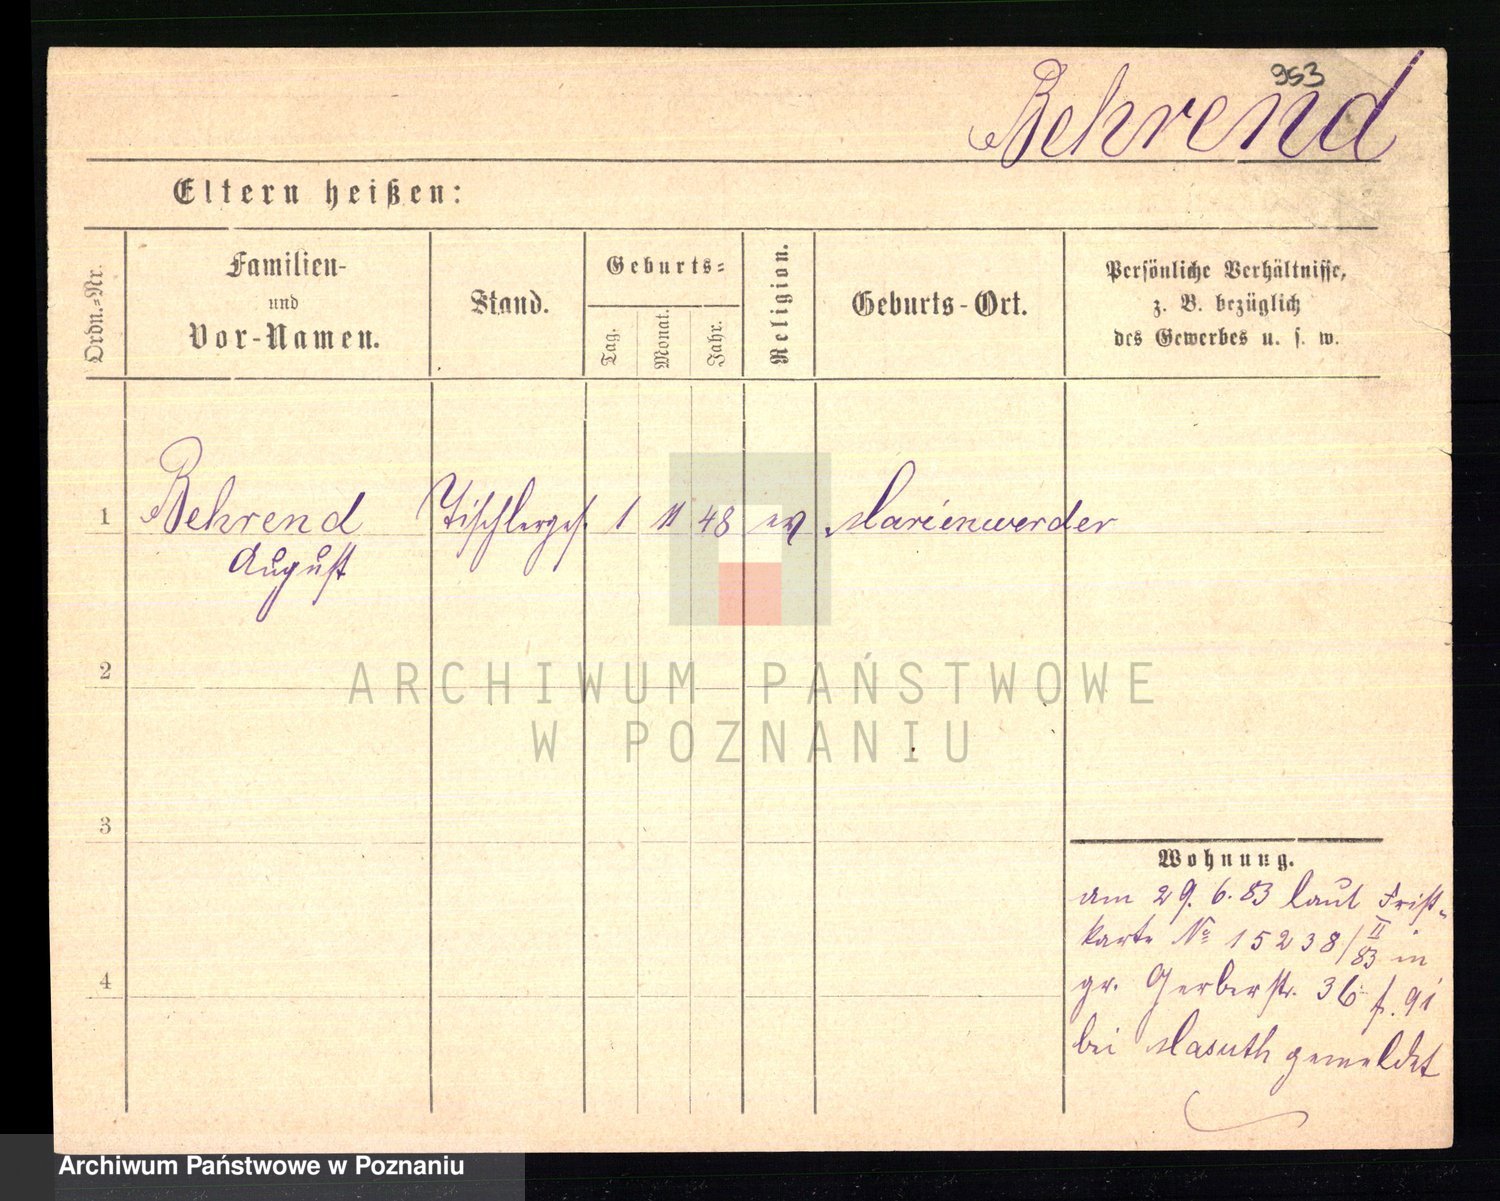 953
Behrend
Eltern heißen:
Ordn.-Nr.
Familien-
und
Vor-Namen.
Stand.
Geburts-
Tag.
Monat.
Jahr.
Religion.
Geburts-Ort.
Persönliche Verhältnisse,
z. B. bezüglich
des Gewerbes u. s. w.
1 Behrend Tischlerges. 1 11 48 ev Marienwerder
August
2
ARCHIWUM PAŃSTWOWE
W POZNANIU
3
Wohnung.
am 29. 6. 83 laut Frist-
karte No 15238/II 83 in
4
gr. Gerberstr. 36 f. 91
bei Masuth gemeldet
Archiwum Państwowe w Poznaniu